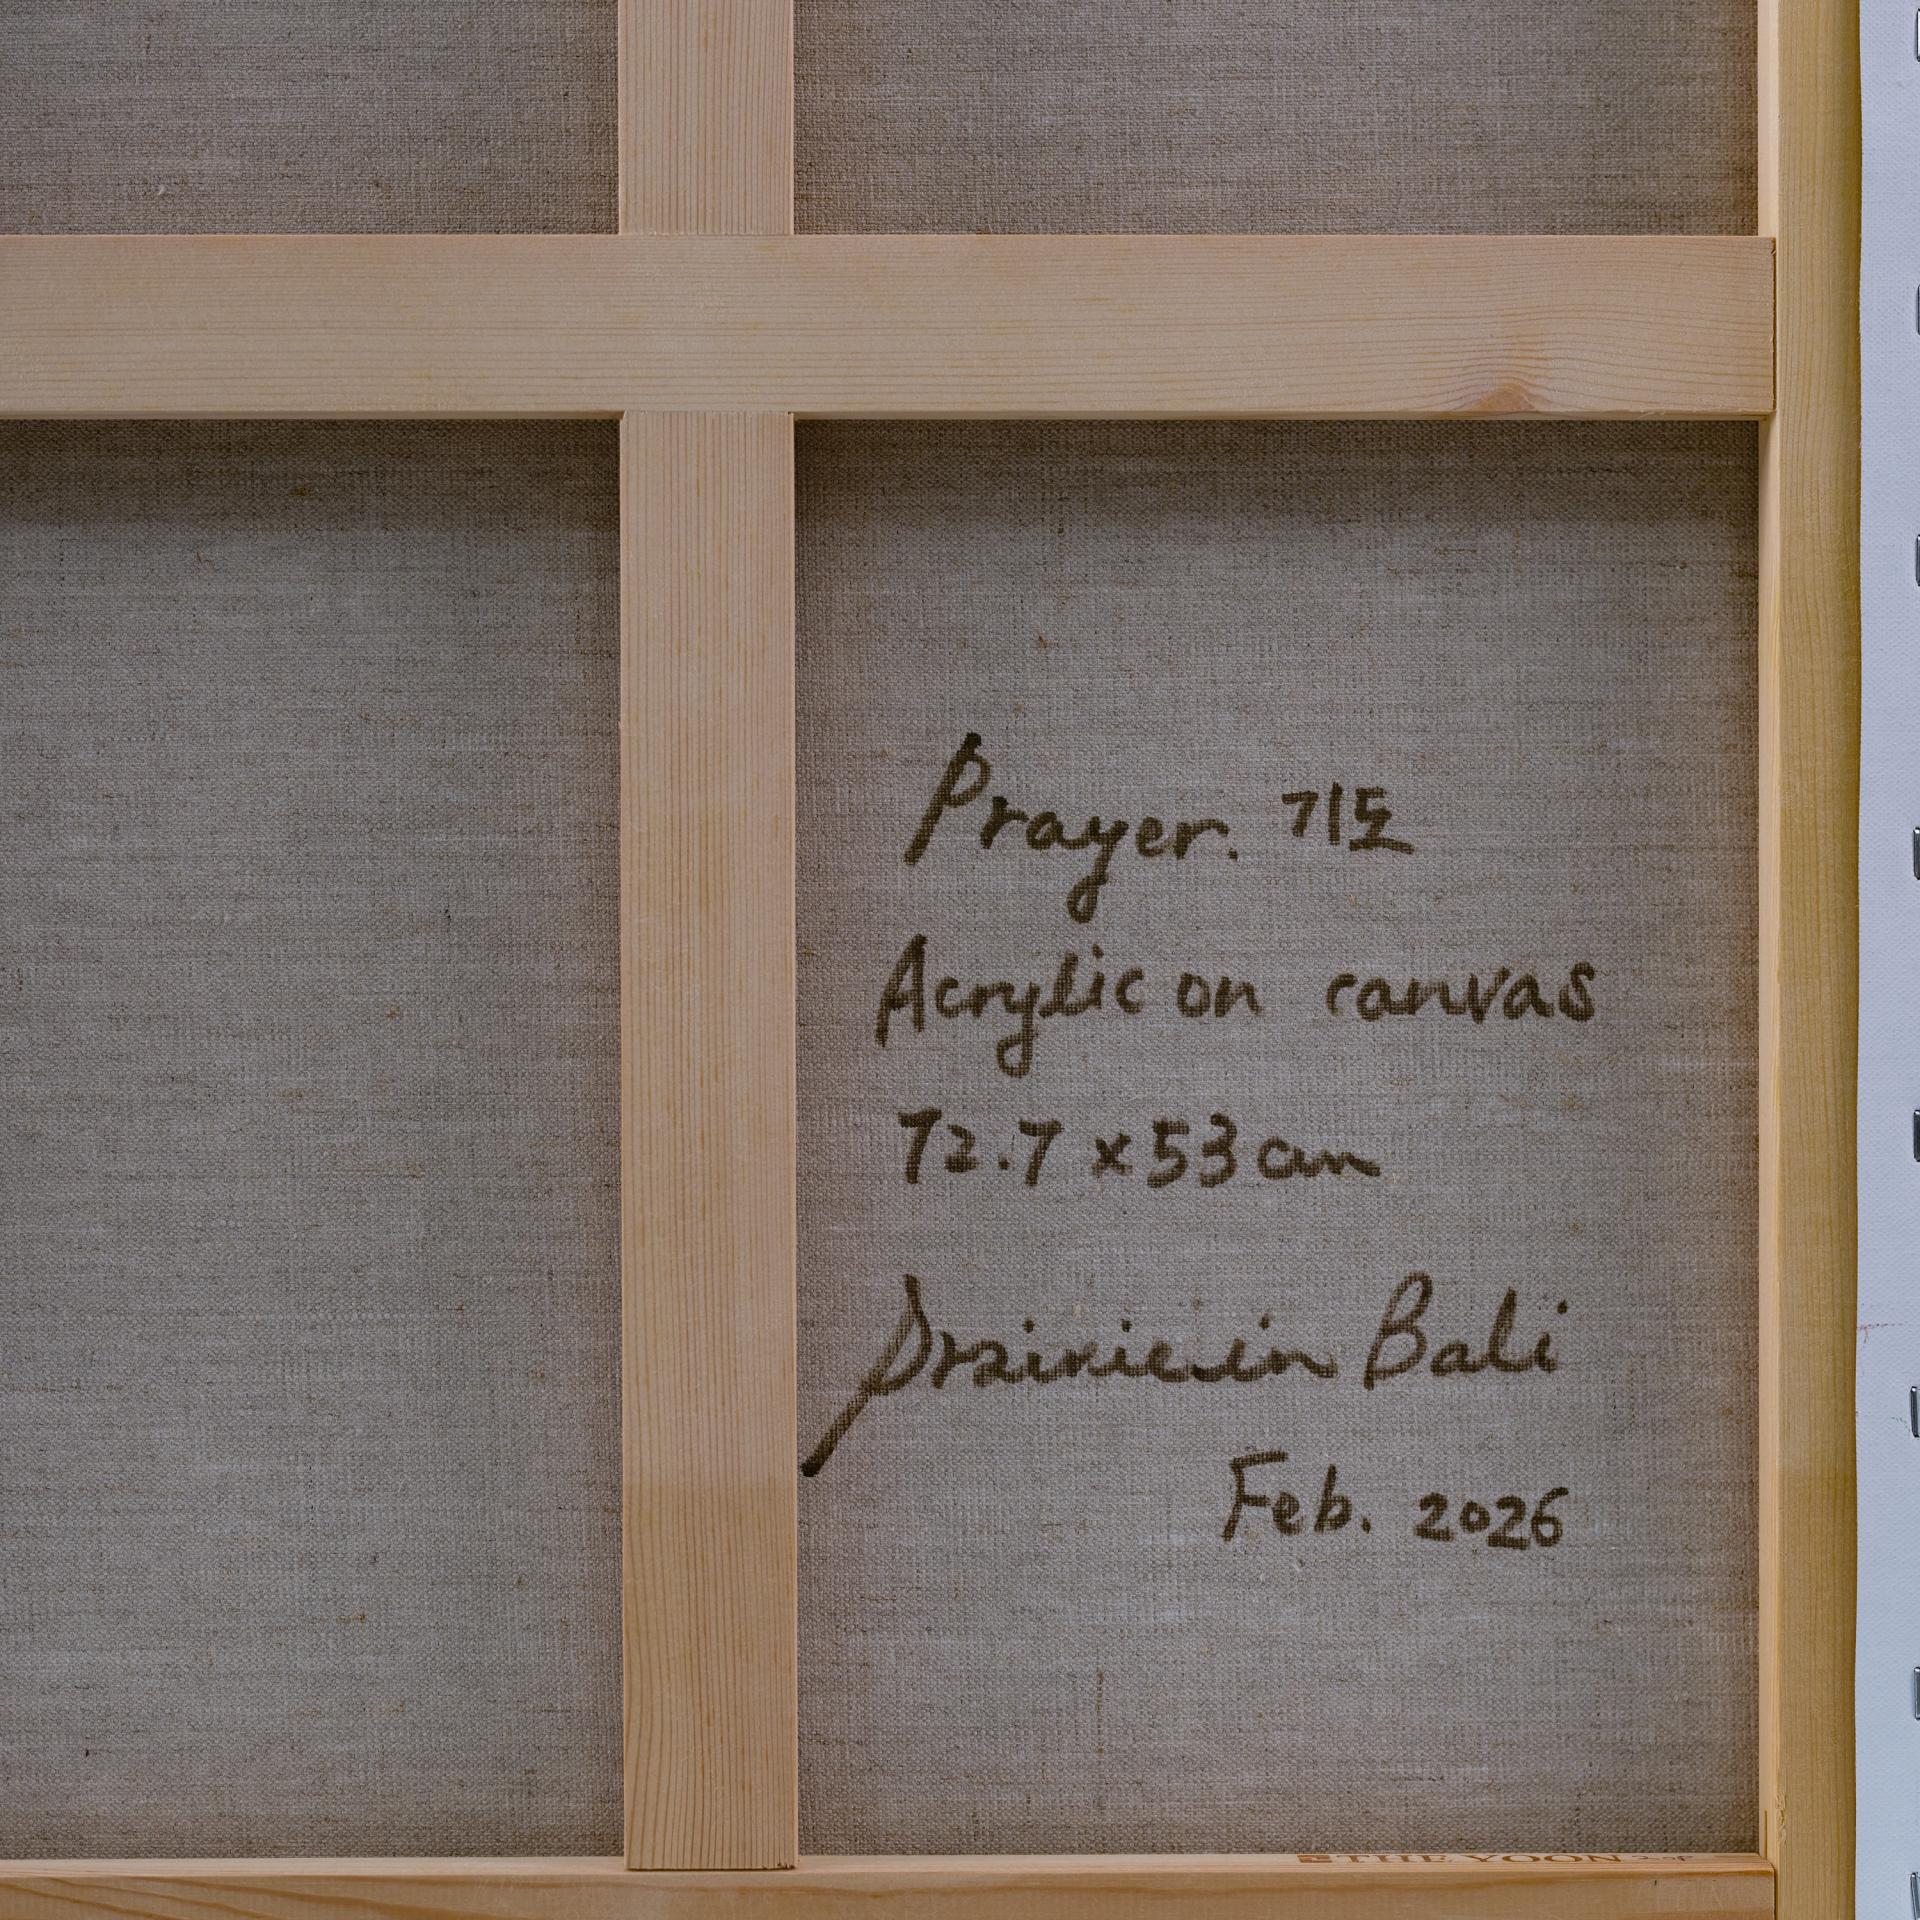 Prayer. 기도
Acrylic on canvas
72.7 x 53 cm
in Bali
Feb. 2026
THE YOON